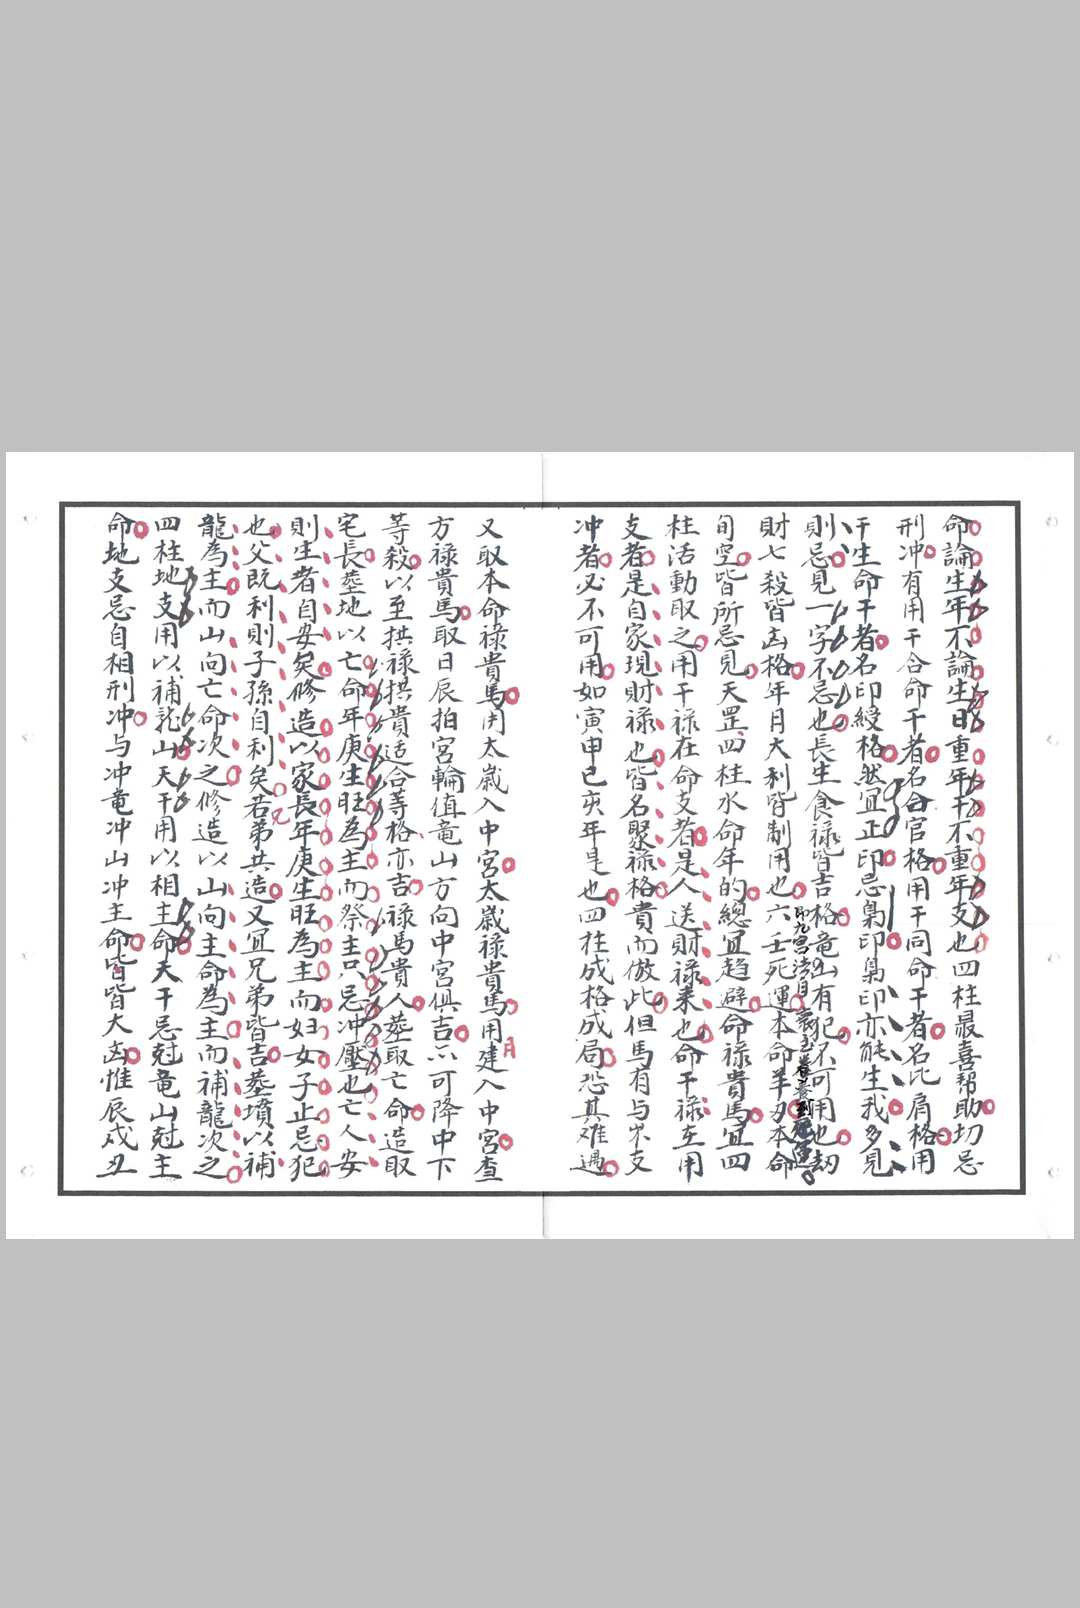 命論生年不論生日重年干不重年支也四柱最喜幫助切忌
刑冲有用干合命干者名合官格用干同命干者名比肩格用
干生命干者名印綬格然宜正印忌梟印梟印亦能生我多見
則忌見一字不忌也長生食祿皆吉格竜山有犯不可用也劫
財七殺皆凶格年月大利皆制用也六壬死運本命羊刃本命
旬空皆所忌見天罡四柱水命年的總宜趋避命祿貴馬宜四
柱活動取之用干祿在命支者是人送財祿来也命干祿在用
支者是自家現財祿也皆名聚祿格貴而倣此但馬有与岁支
冲者必不可用如寅申巳亥年是也四柱成格成局恐其难遇
又取本命祿貴馬用太歲入中宮太歲祿貴馬用月建入中宮查
方祿貴馬取日辰拍宮輪值竜山方向中宮俱吉不可降中下
等殺以至拱祿拱貴适合等格亦吉祿馬貴人塟取亡命造取
宅長塟地以亡命年庚生旺為主而祭主只忌冲壓也亡人安
則生者自安矣修造以家長年庚生旺為主而妇女子止忌犯
也父既利則子孫自利矣若兄弟共造又宜兄弟皆吉塟墳以補
龍為主而山向亡命次之修造以山向主命為主而補龍次之
四柱地支用以補龍山天干用以相主命天干忌尅竜山尅主
命地支忌自相刑冲与冲竜冲山冲主命皆皆大凶惟辰戍丑